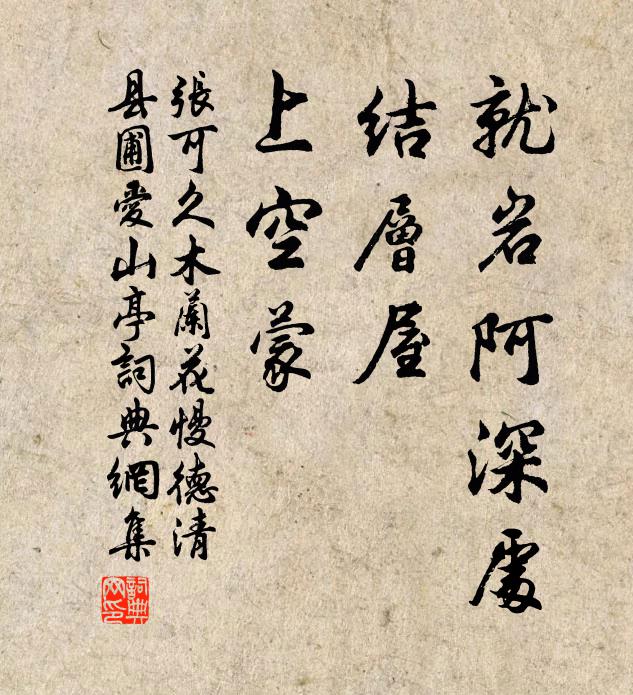 就岩阿深處
結層屋
上空蒙
張可久木蘭花慢德清
县圃愛山亭詞典網集
詞典
网印